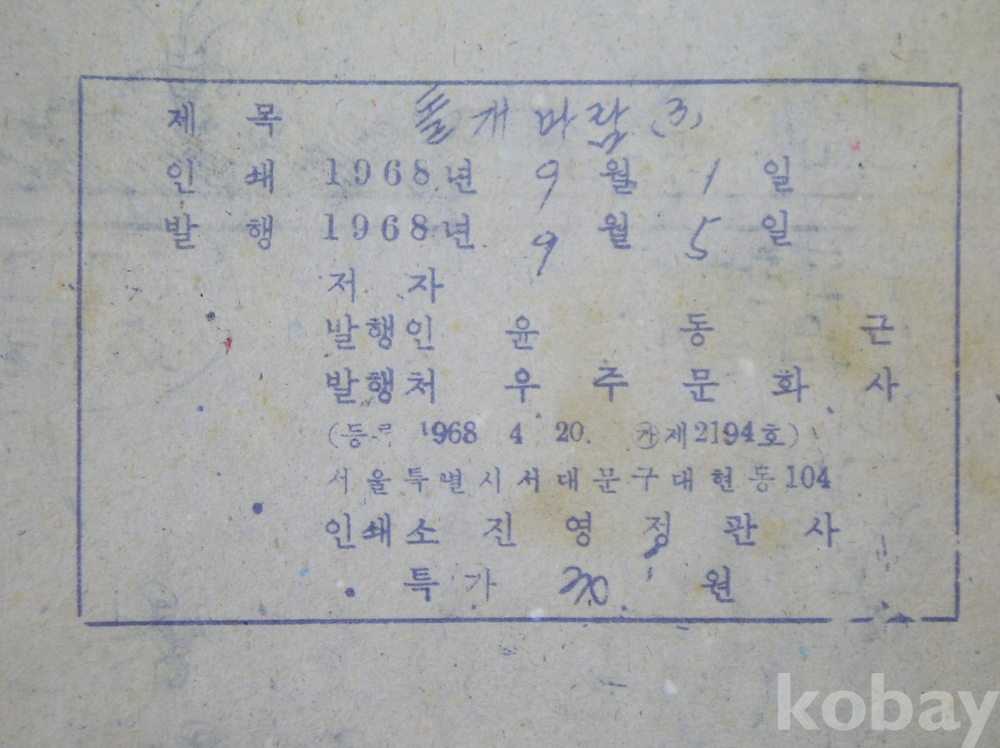 제 목 돌개바람 (3)
인 쇄 1968년 9 월 1 일
발 행 1968년 9 월 5 일
저 자
발행인 윤 동 근
발행처 우 주 문 화 사
(등록 1968 4 20. ㉮제2194호)
서울특별시서대문구대현동104
인쇄소 진 영 정 판 사
특가 원
kobay